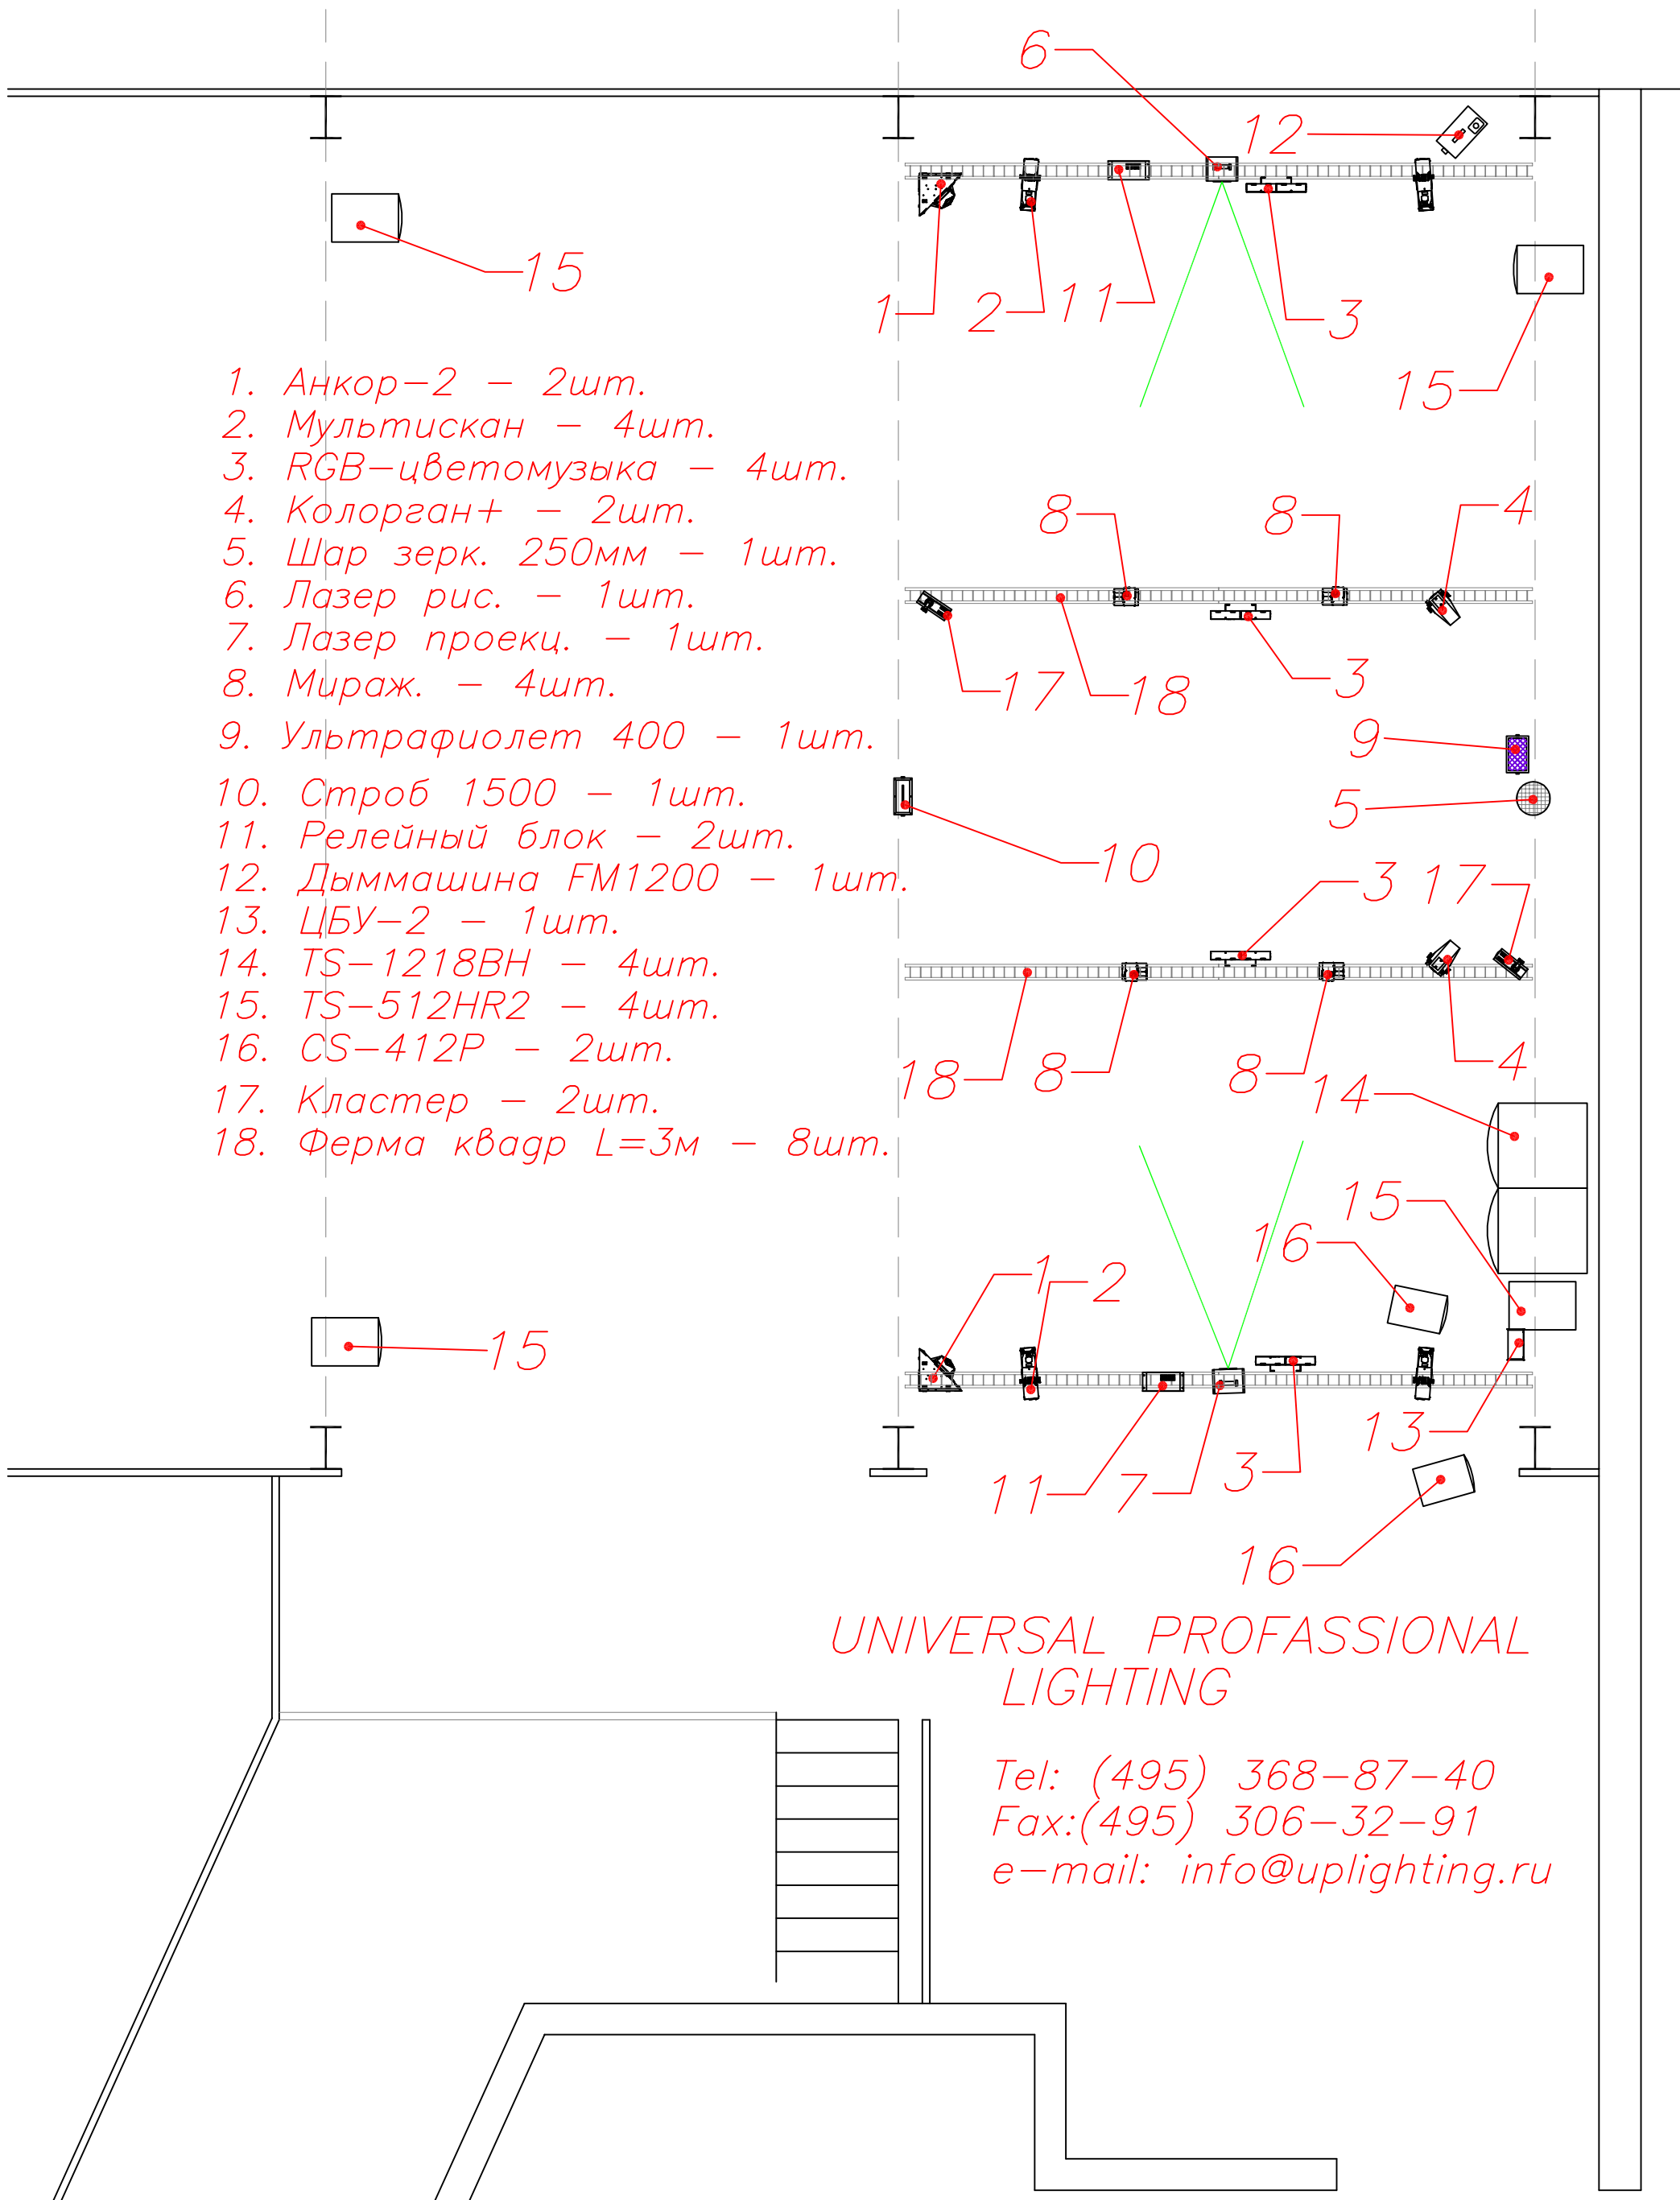 6
12
15
1
2
11
3
15
1. Анкор-2 - 2шт.
2. Мультискан - 4шт.
3. RGB-цветомузыка - 4шт.
4. Колорган+ - 2шт.
5. Шар зерк. 250мм - 1шт.
6. Лазер рис. - 1шт.
7. Лазер проекц. - 1шт.
8. Мираж. - 4шт.
9. Ультрафиолет 400 - 1шт.
10. Строб 1500 - 1шт.
11. Релейный блок - 2шт.
12. Дыммашина FM1200 - 1шт.
13. ЦБУ-2 - 1шт.
14. TS-1218BH - 4шт.
15. TS-512HR2 - 4шт.
16. CS-412P - 2шт.
17. Кластер - 2шт.
18. Ферма квадр L=3м - 8шт.
8
8
4
17
18
3
9
5
10
3
17
18
8
8
4
14
15
16
1
2
15
13
11
7
3
16
UNIVERSAL PROFASSIONAL
LIGHTING
Tel: (495) 368-87-40
Fax:(495) 306-32-91
e-mail: info@uplighting.ru